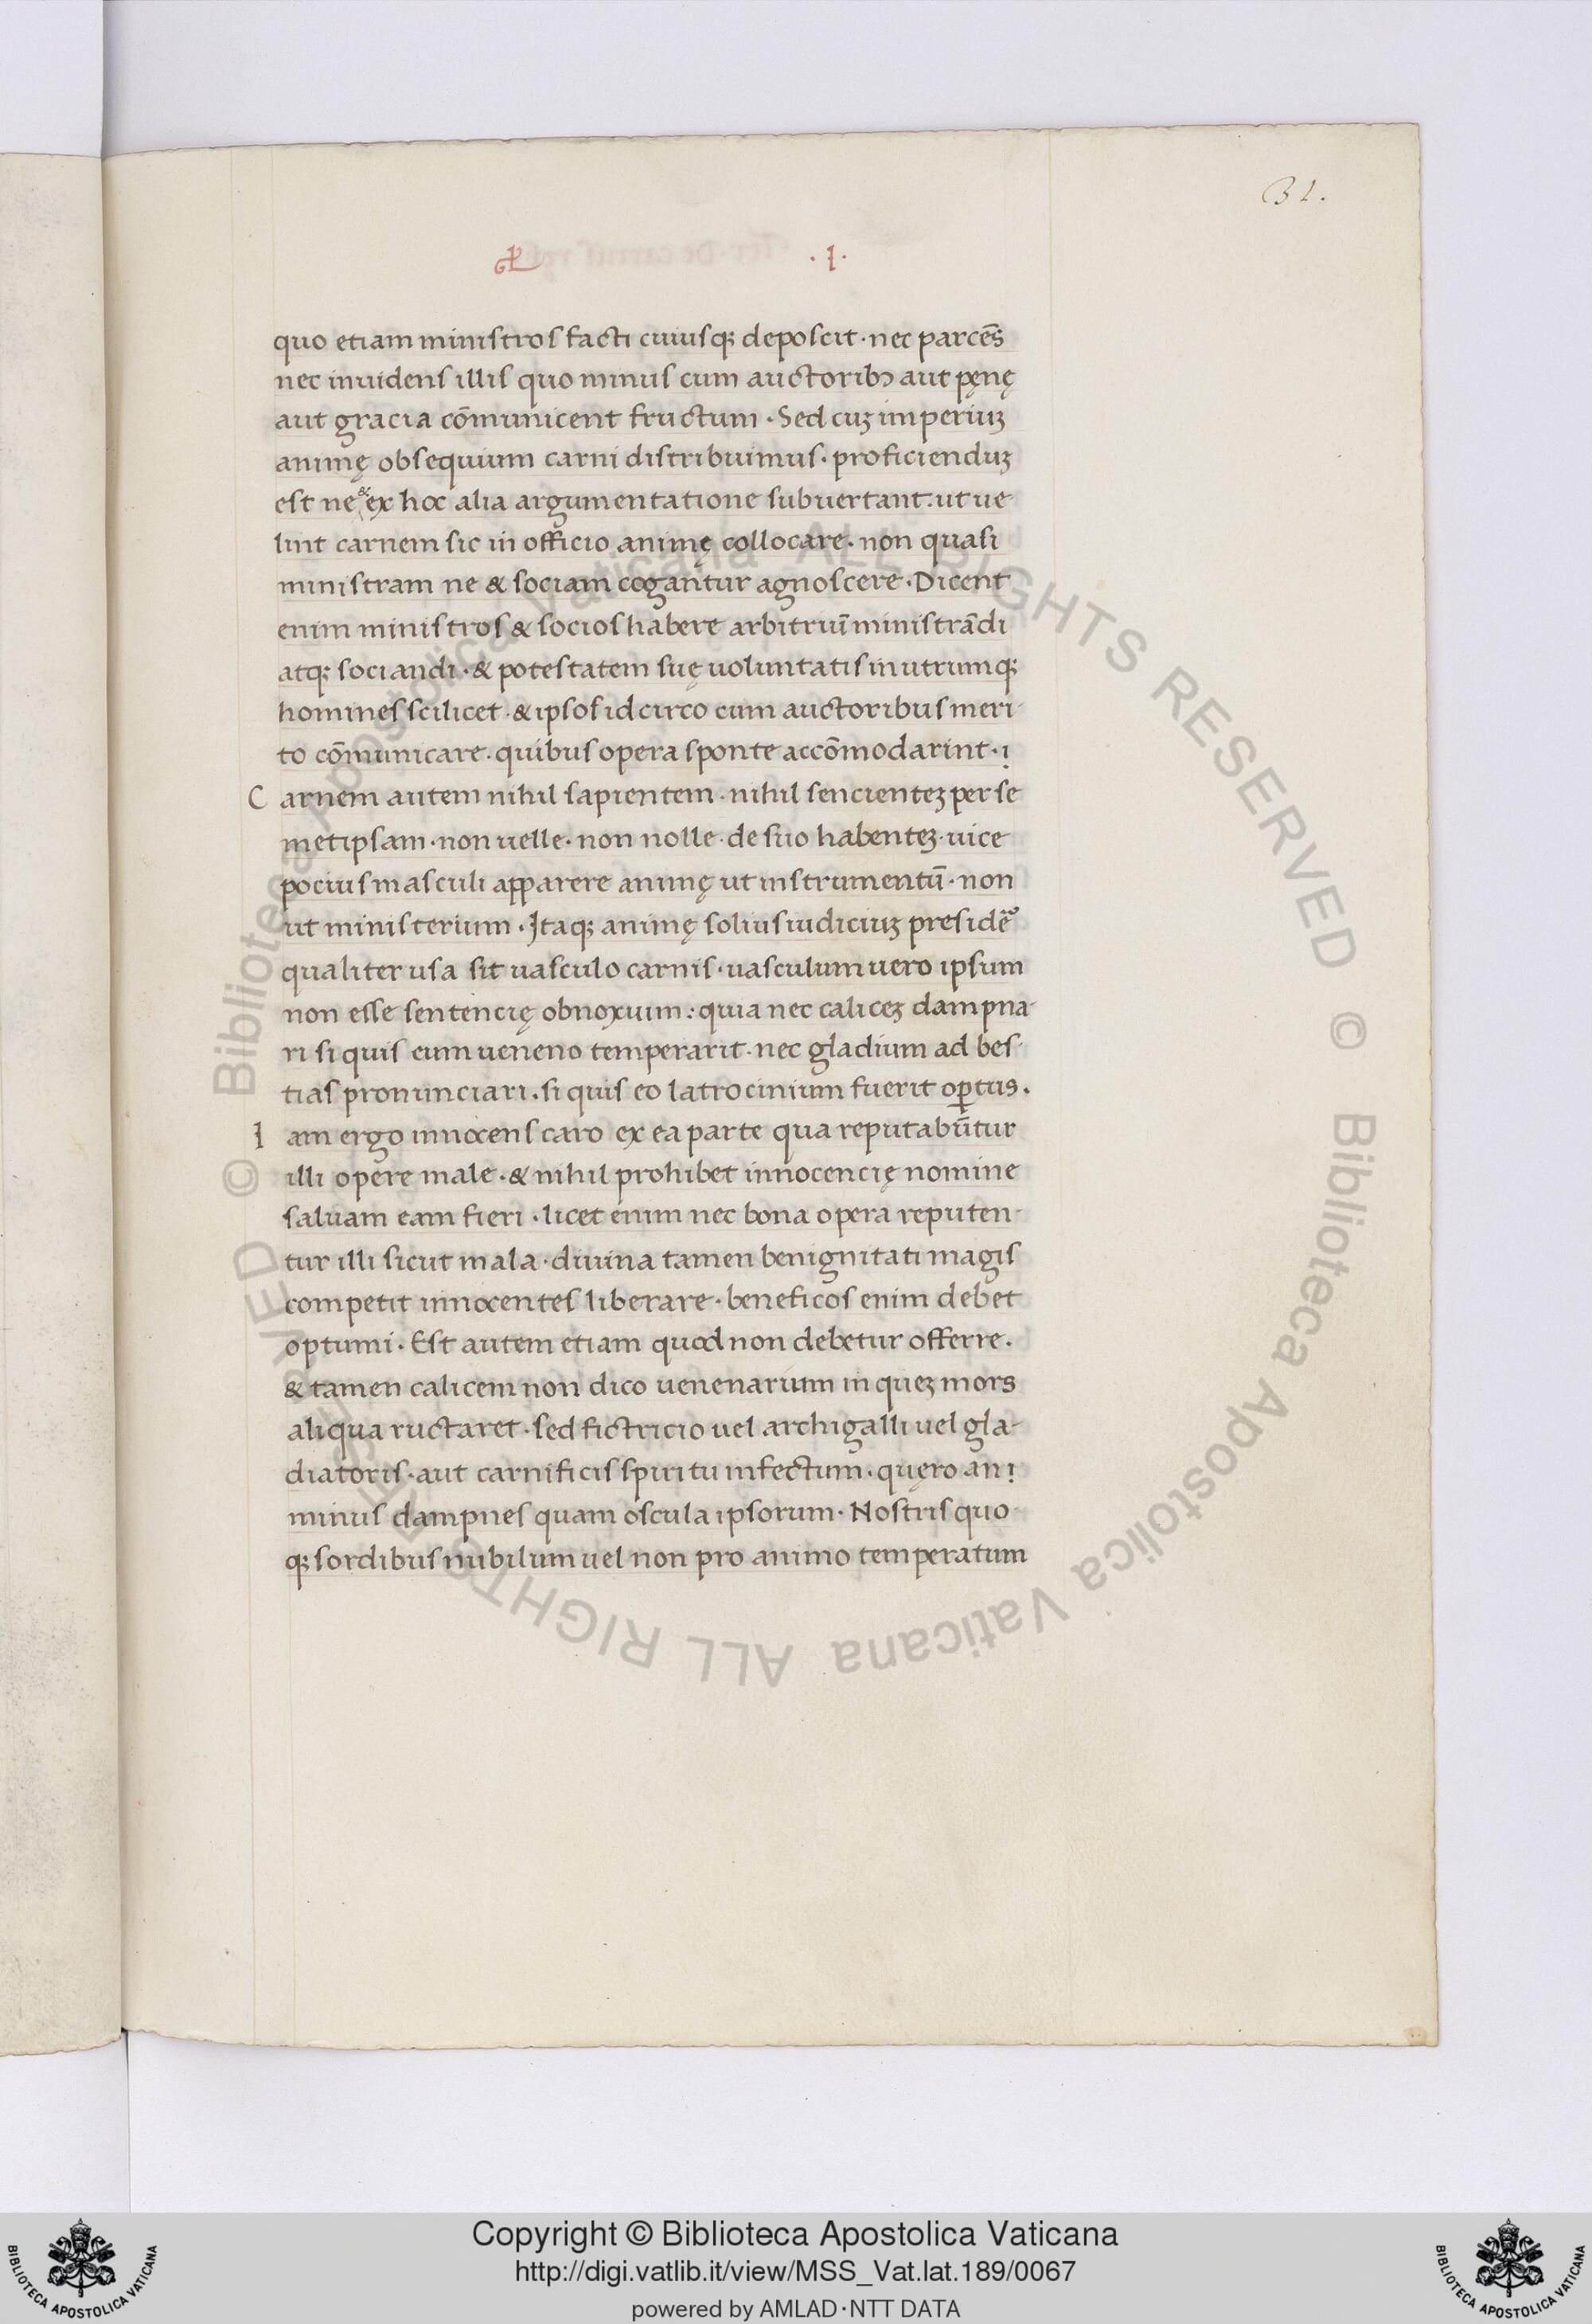 31.
·I·
quo etiam ministros facti cuiusq; deposcit · nec parcēs
nec inuidens illis quo minus cum auctoribꝫ aut pęnę
aut gracia cōmunicent fructum · Sed cuꝫ imperiuꝫ
animę obsequium carni distribuimus · proficienduꝫ
est ne & ex hoc alia argumentatione subuertant · ut ue
lint carnem sic in officio animę collocare · non quasi
ministram ne & sociam cogantur agnoscere · Dicent
enim ministros & socios habere arbitriū ministrādi
atq; sociandi · & potestatem suę uoluntatis in utrumq;
homines scilicet · & ipsos idcirco cum auctoribus meri
to cōmunicare · quibus opera sponte accōmodarint ·
Carnem autem nihil sapientem · nihil sencienteꝫ per se
metipsam · non uelle · non nolle · de suo habenteꝫ · uice
pocius masculi apparere animę ut instrumentū · non
ut ministerium · Itaq; animę solius iudiciuꝫ presidē
qualiter usa sit uasculo carnis · uasculum uero ipsum
non esse sentencię obnoxium : quia nec caliceꝫ dampna-
ri si quis eum ueneno temperarit · nec gladium ad bes-
tias pronunciari · si quis eo latrocinium fuerit opꝑtus ·
Iam ergo innocens caro ex ea parte qua reputabūtur
illi opere male · & nihil prohibet innocencię nomine
saluam eam fieri · licet enim nec bona opera reputen-
tur illi sicut mala · diuina tamen benignitati magis
competit innocentes liberare · beneficos enim debet
optumi · Est autem etiam quod non debetur offerre ·
& tamen calicem non dico uenenarium in queꝫ mors
aliqua ructaret · sed fictricio uel archigalli uel gla-
diatoris · aut carnificis spiritu infectum · quęro an
minus dampnes quam oscula ipsorum · Nostris quo
q; sordibus nubilum uel non pro animo temperatum
© Biblioteca Apostolica Vaticana ALL RIGHTS RESERVED © Biblioteca Apostolica Vaticana ALL RIGHTS RESERVED
BIBLIOTECA APOSTOLICA VATICANA
Copyright © Biblioteca Apostolica Vaticana
http://digi.vatlib.it/view/MSS_Vat.lat.189/0067
powered by AMLAD·NTT DATA
BIBLIOTECA APOSTOLICA VATICANA